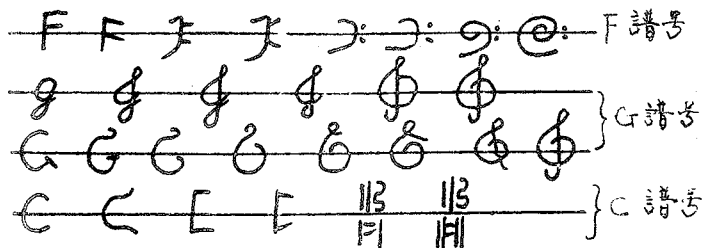 F譜号
G譜号
C譜号